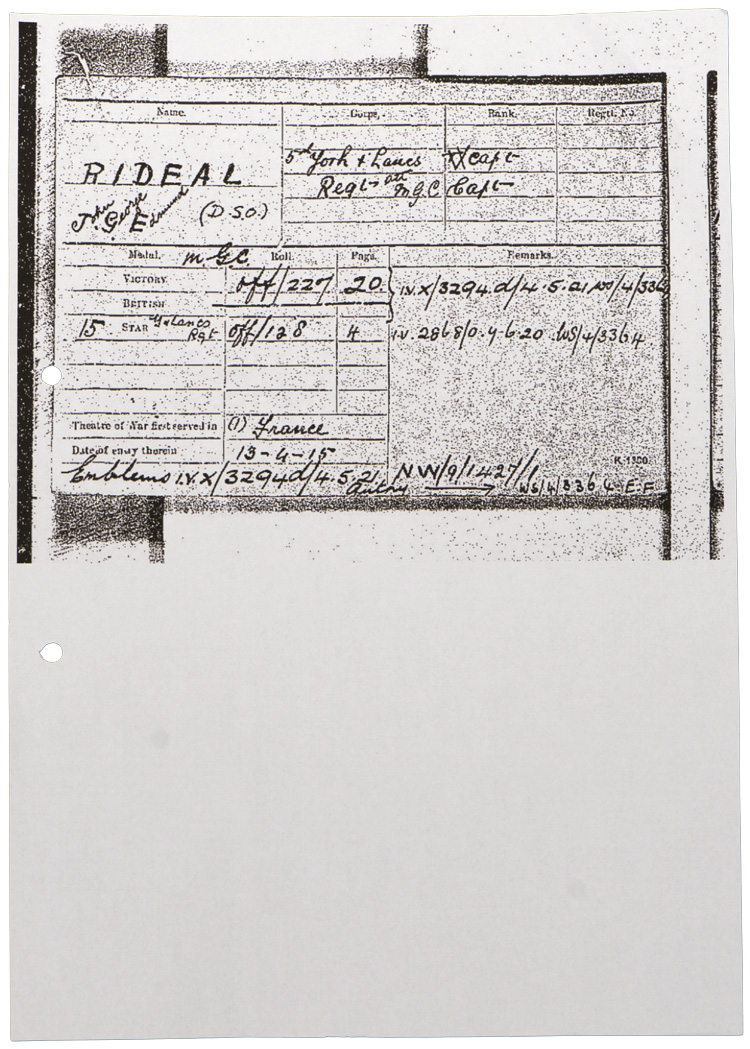 Name. Corps. Rank. Regtl. No.
RIDEAL
John George Edmund (D.S.O.)
5th York & Lancs Capt
Regt att M.G.C Capt
Medal. M.G.C. Roll. Page. Remarks.
VICTORY off/227 20 I.V.X/3294d/4.5.21 WS/4/336
BRITISH
15 STAR Y & Lancs Rgt off/128 4 I.V. 2868/D.4.6.20 WS/4/3364
Theatre of War first served in (1) France
Date of entry therein 13-4-15
K. 1380
Emblems I.V.X/3294d/4.5.21 NW/9/1427/1
Authy WS/4/3364 E-F